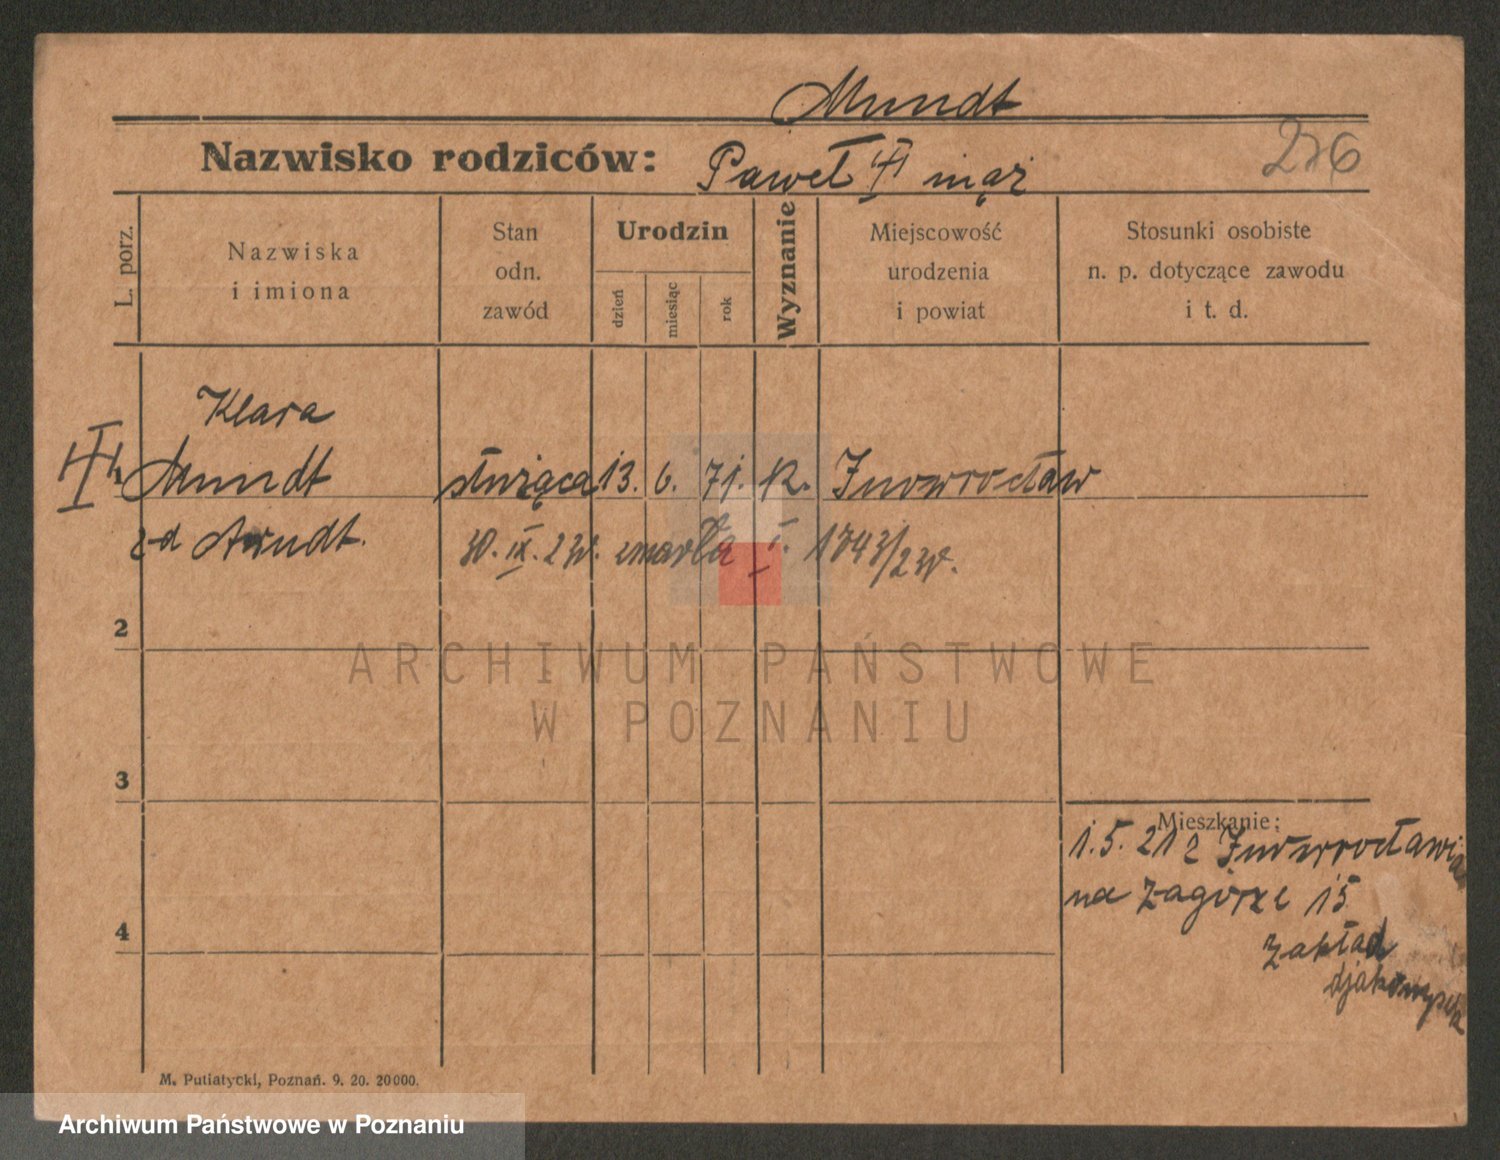 Mundt
Nazwisko rodziców: Paweł mąż
276
L. porz.
Nazwiska
i imiona
Stan
odn.
zawód
Urodzin
dzień
miesiąc
rok
Wyznanie
Miejscowość
urodzenia
i powiat
Stosunki osobiste
n. p. dotyczące zawodu
i t. d.
Klara
1 Mundt służąca 13. 6. 71. K. Inowrocław
z-d Arndt. 30. IX. zmarła I.
2
3
4
Mieszkanie:
1.5.21 z Inowrocławia
na Zagórze 15
Zakład
ARCHIWUM PAŃSTWOWE
W POZNANIU
M. Putiatycki, Poznań. 9. 20. 20000.
Archiwum Państwowe w Poznaniu